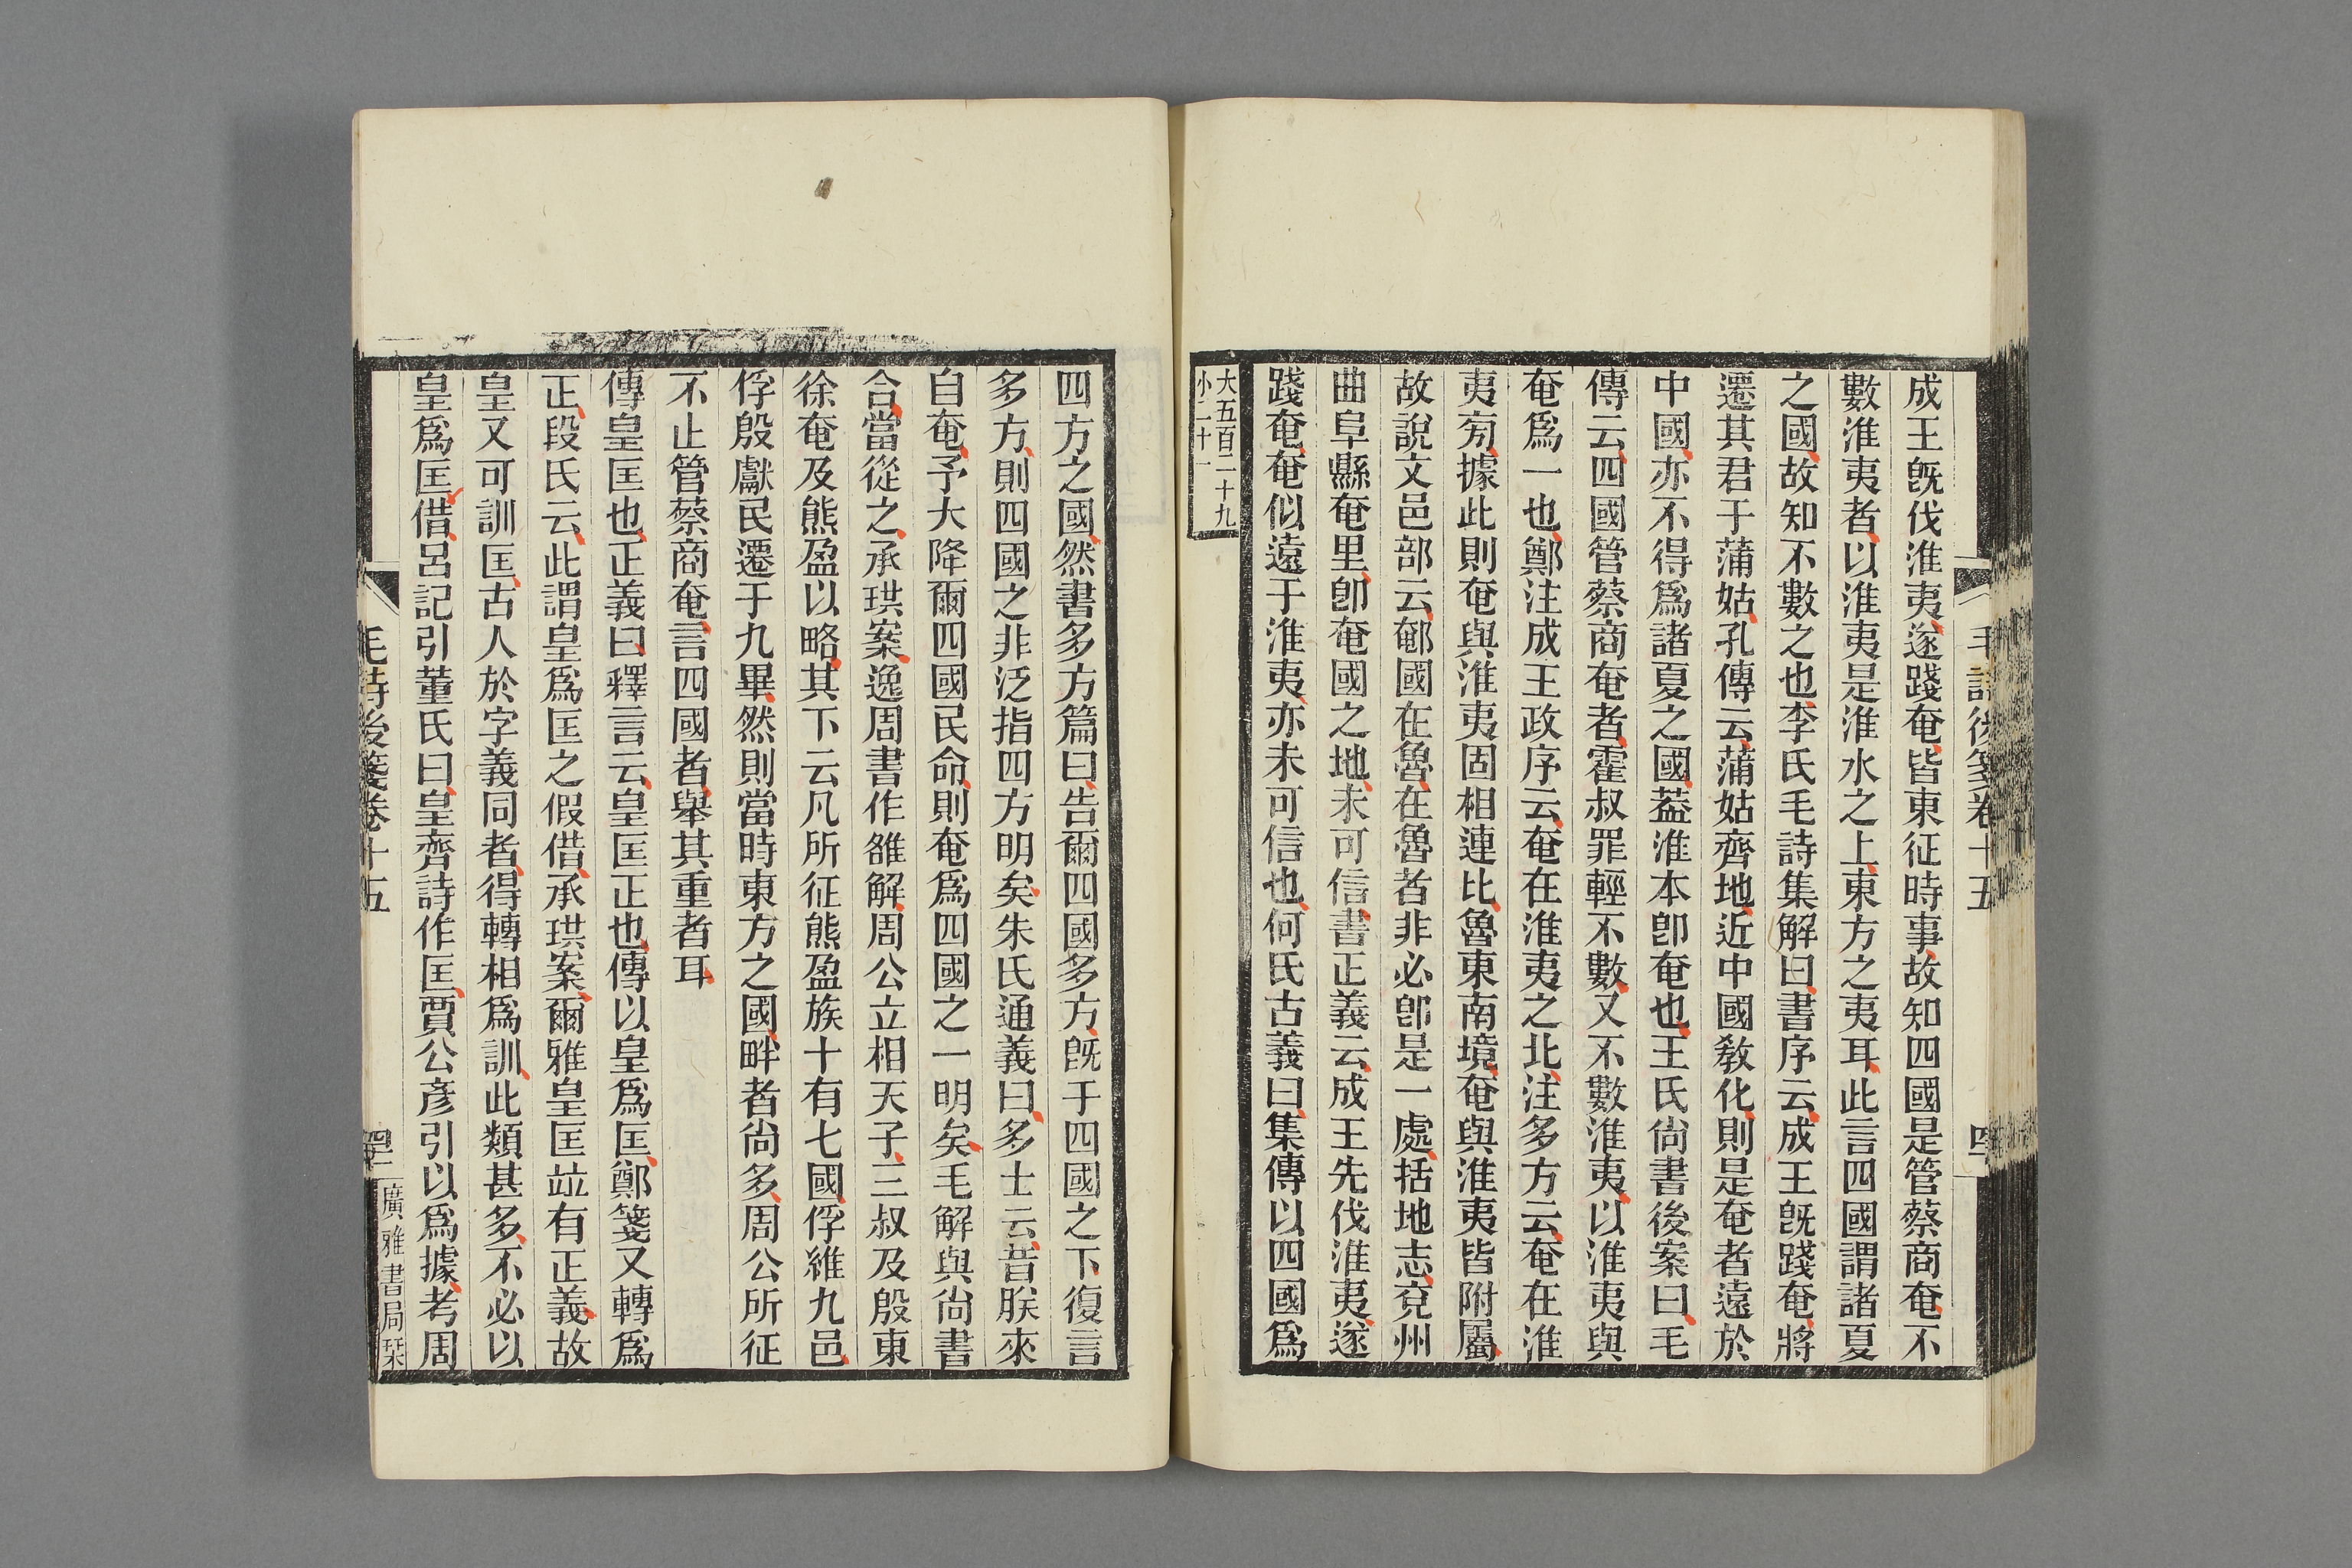 成王旣伐淮夷遂踐奄皆東征時事故知四國是管蔡商奄不
數淮夷者以淮夷是淮水之上東方之夷耳此言四國謂諸夏
之國故知不數之也李氏毛詩集解曰書序云成王旣踐奄將
遷其君于蒲姑孔傳云蒲姑齊地近中國敎化則是奄者遠於
中國亦不得爲諸夏之國葢淮本卽奄也王氏尙書後案曰毛
傳云四國管蔡商奄者霍叔罪輕不數又不數淮夷以淮夷與
奄爲一也鄭注成王政序云奄在淮夷之北注多方云奄在淮
夷㫄據此則奄與淮夷固相連比魯東南境奄與淮夷皆附屬
故說文邑部云䣍國在魯在魯者非必卽是一處括地志兗州
曲阜縣奄里卽奄國之地未可信書正義云成王先伐淮夷遂
踐奄奄似遠于淮夷亦未可信也何氏古義曰集傳以四國爲
大五百二十九
小二十一
毛詩後箋卷十五
四方之國然書多方篇曰告爾四國多方旣于四國之下復言
多方則四國之非泛指四方明矣朱氏通義曰多士云昔朕來
自奄予大降爾四國民命則奄爲四國之一明矣毛解與尙書
合當從之承珙案逸周書作雒解周公立相天子三叔及殷東
徐奄及熊盈以略其下云凡所征熊盈族十有七國俘維九邑
俘殷獻民遷于九畢然則當時東方之國畔者尙多周公所征
不止管蔡商奄言四國者舉其重者耳
傳皇匡也正義曰釋言云皇匡正也傳以皇爲匡鄭箋又轉爲
正段氏云此謂皇爲匡之假借承珙案爾雅皇匡竝有正義故
皇又可訓匡古人於字義同者得轉相爲訓此類甚多不必以
皇爲匡借呂記引董氏曰皇齊詩作匡賈公彥引以爲據考周
毛詩後箋卷十五
廣雅書局栞